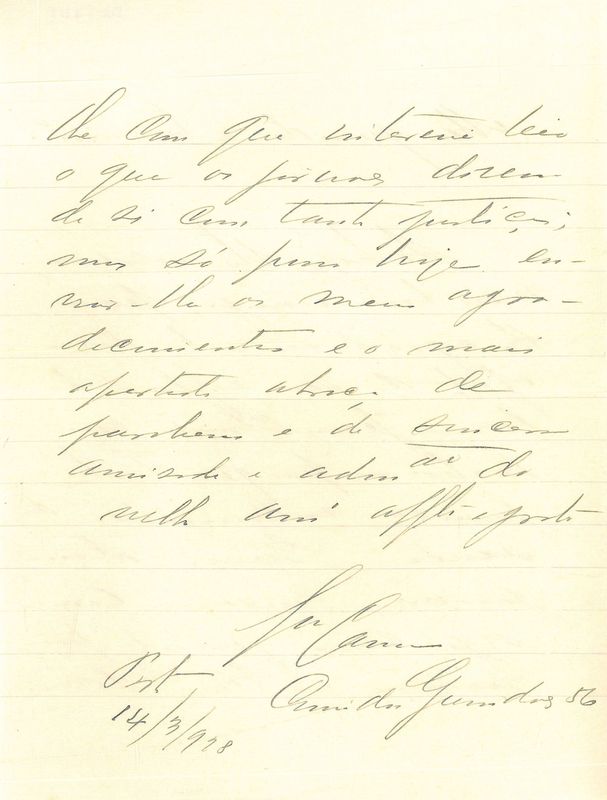 lhe com que interesse leio
o que os jornaes dizem
de si com tanta justiça;
mas só posso hoje en-
viar-lhe os meus agra-
decimentos e o mais
apertado abraço de
parabens e de sincera
amizade e admão do
velho amº affº e grato
Porto
14/3/928
56